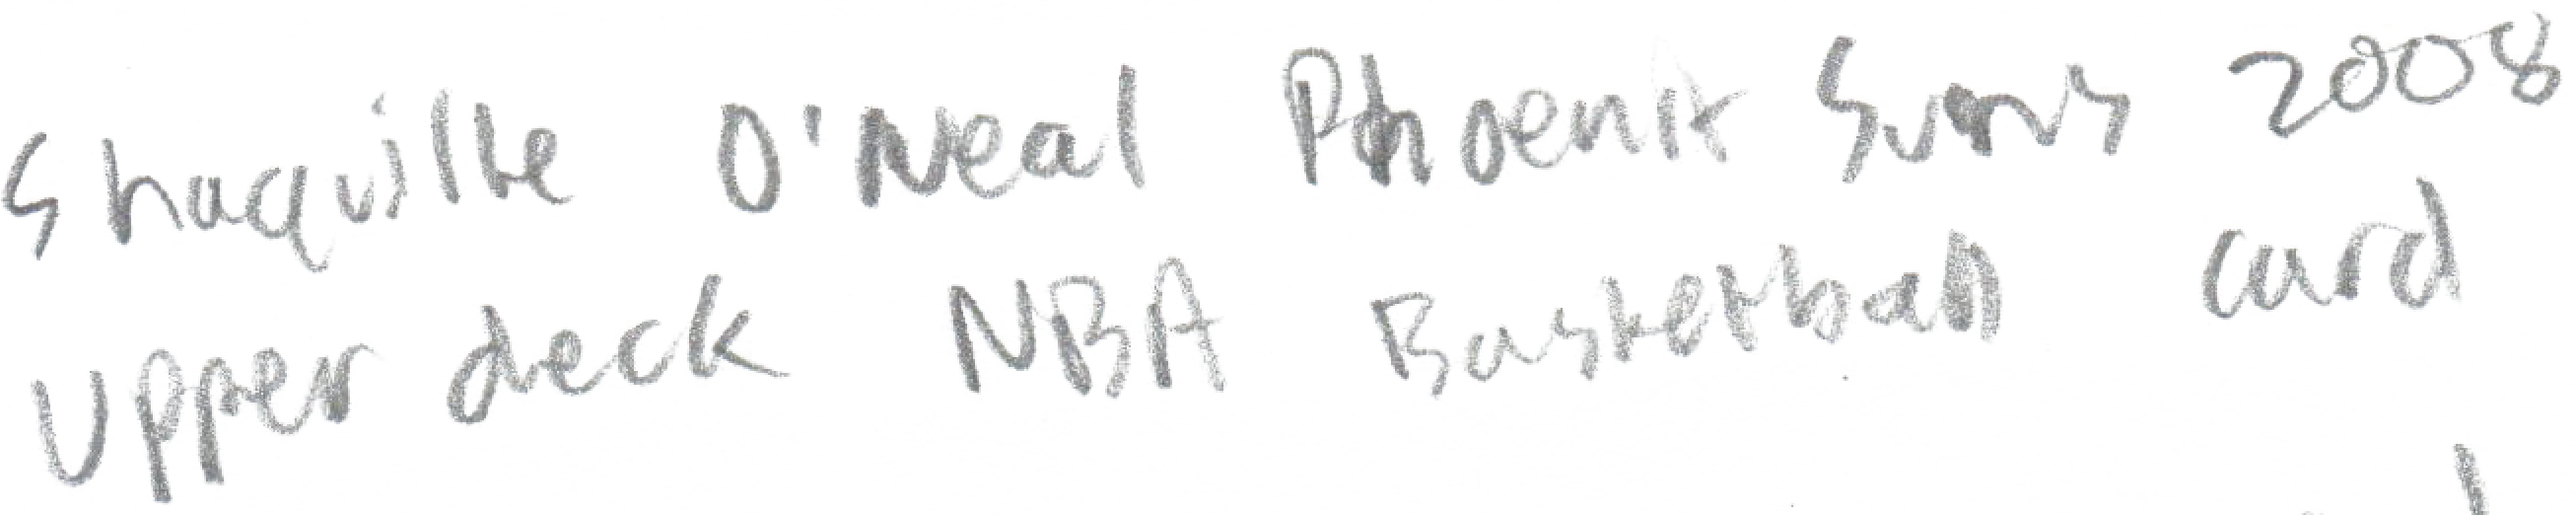 Shaquille O'Neal Phoenix Suns 2008
Upper deck NBA Basketball card